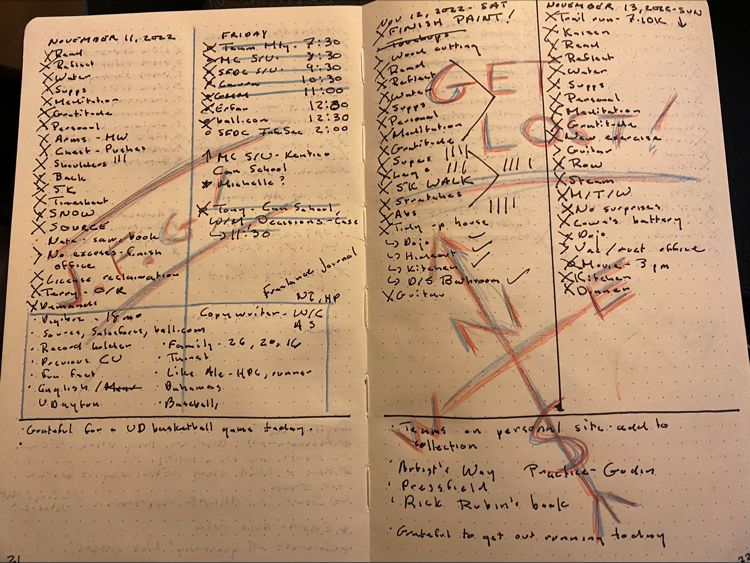 NOVEMBER 11, 2022
Read
Reflect
Water
Supps
Meditation
Gratitude
Personal
Arms - HW
Chest - Pushes
Shoulders III
Back
5K
Timesheet
SNOW
SOURCE
Note - source book
No excuses - finish
office
License reclamation
Terry - O/R
Demands
FRIDAY
Team Mtg. 7:30
MC S/U. 8:30
SFDC S/U. 9:30
10:30
11:00
Erfan 12:00
ball.com 12:30
SFDC 2:00
MC S/U - Kentico
Con School
Michelle?
Tony - Con School,
11:30
Freelance Journal
NZ, HP
18 mo
Source, Salesforce, ball.com
Record holder
Previous CU
Fun Fact
English /
UDayton
Copywriter - W/C
AS
Family - 26, 20, 16
Like Ale - HPC, runner
Bahamas
Baseball,
Grateful for a UD basketball game today.
21
NOV 12, 2022 - SAT
FINISH PAINT!
Touchups
Wood cutting
Read
Reflect
Water
Supps
Personal
Meditation
Gratitude
Supes IIII
Legs IIII
5K WALK
Stretches
Abs IIII
Tidy up house
↳ Dojo ✓
↳ Hideout ✓
↳ Kitchen ✓
↳ D/S Bathroom ✓
Guitar
GET
LOST!
N
E
W
S
NOVEMBER 13, 2022 - SUN
Trail run - 7.10K ↓
Kaizen
Read
Reflect
Water
Supps
Personal
Meditation
Gratitude
New exercise
Guitar
Row
Steam
M/T/W
No surprises
battery
Dojo
Vac / dust office
Movie - 3 pm
Kitchen
Dinner
Teams on personal site - add to
collection
Artist's Way Practice - Godin
Pressfield
Rick Rubin's book
Grateful to get out running today
22